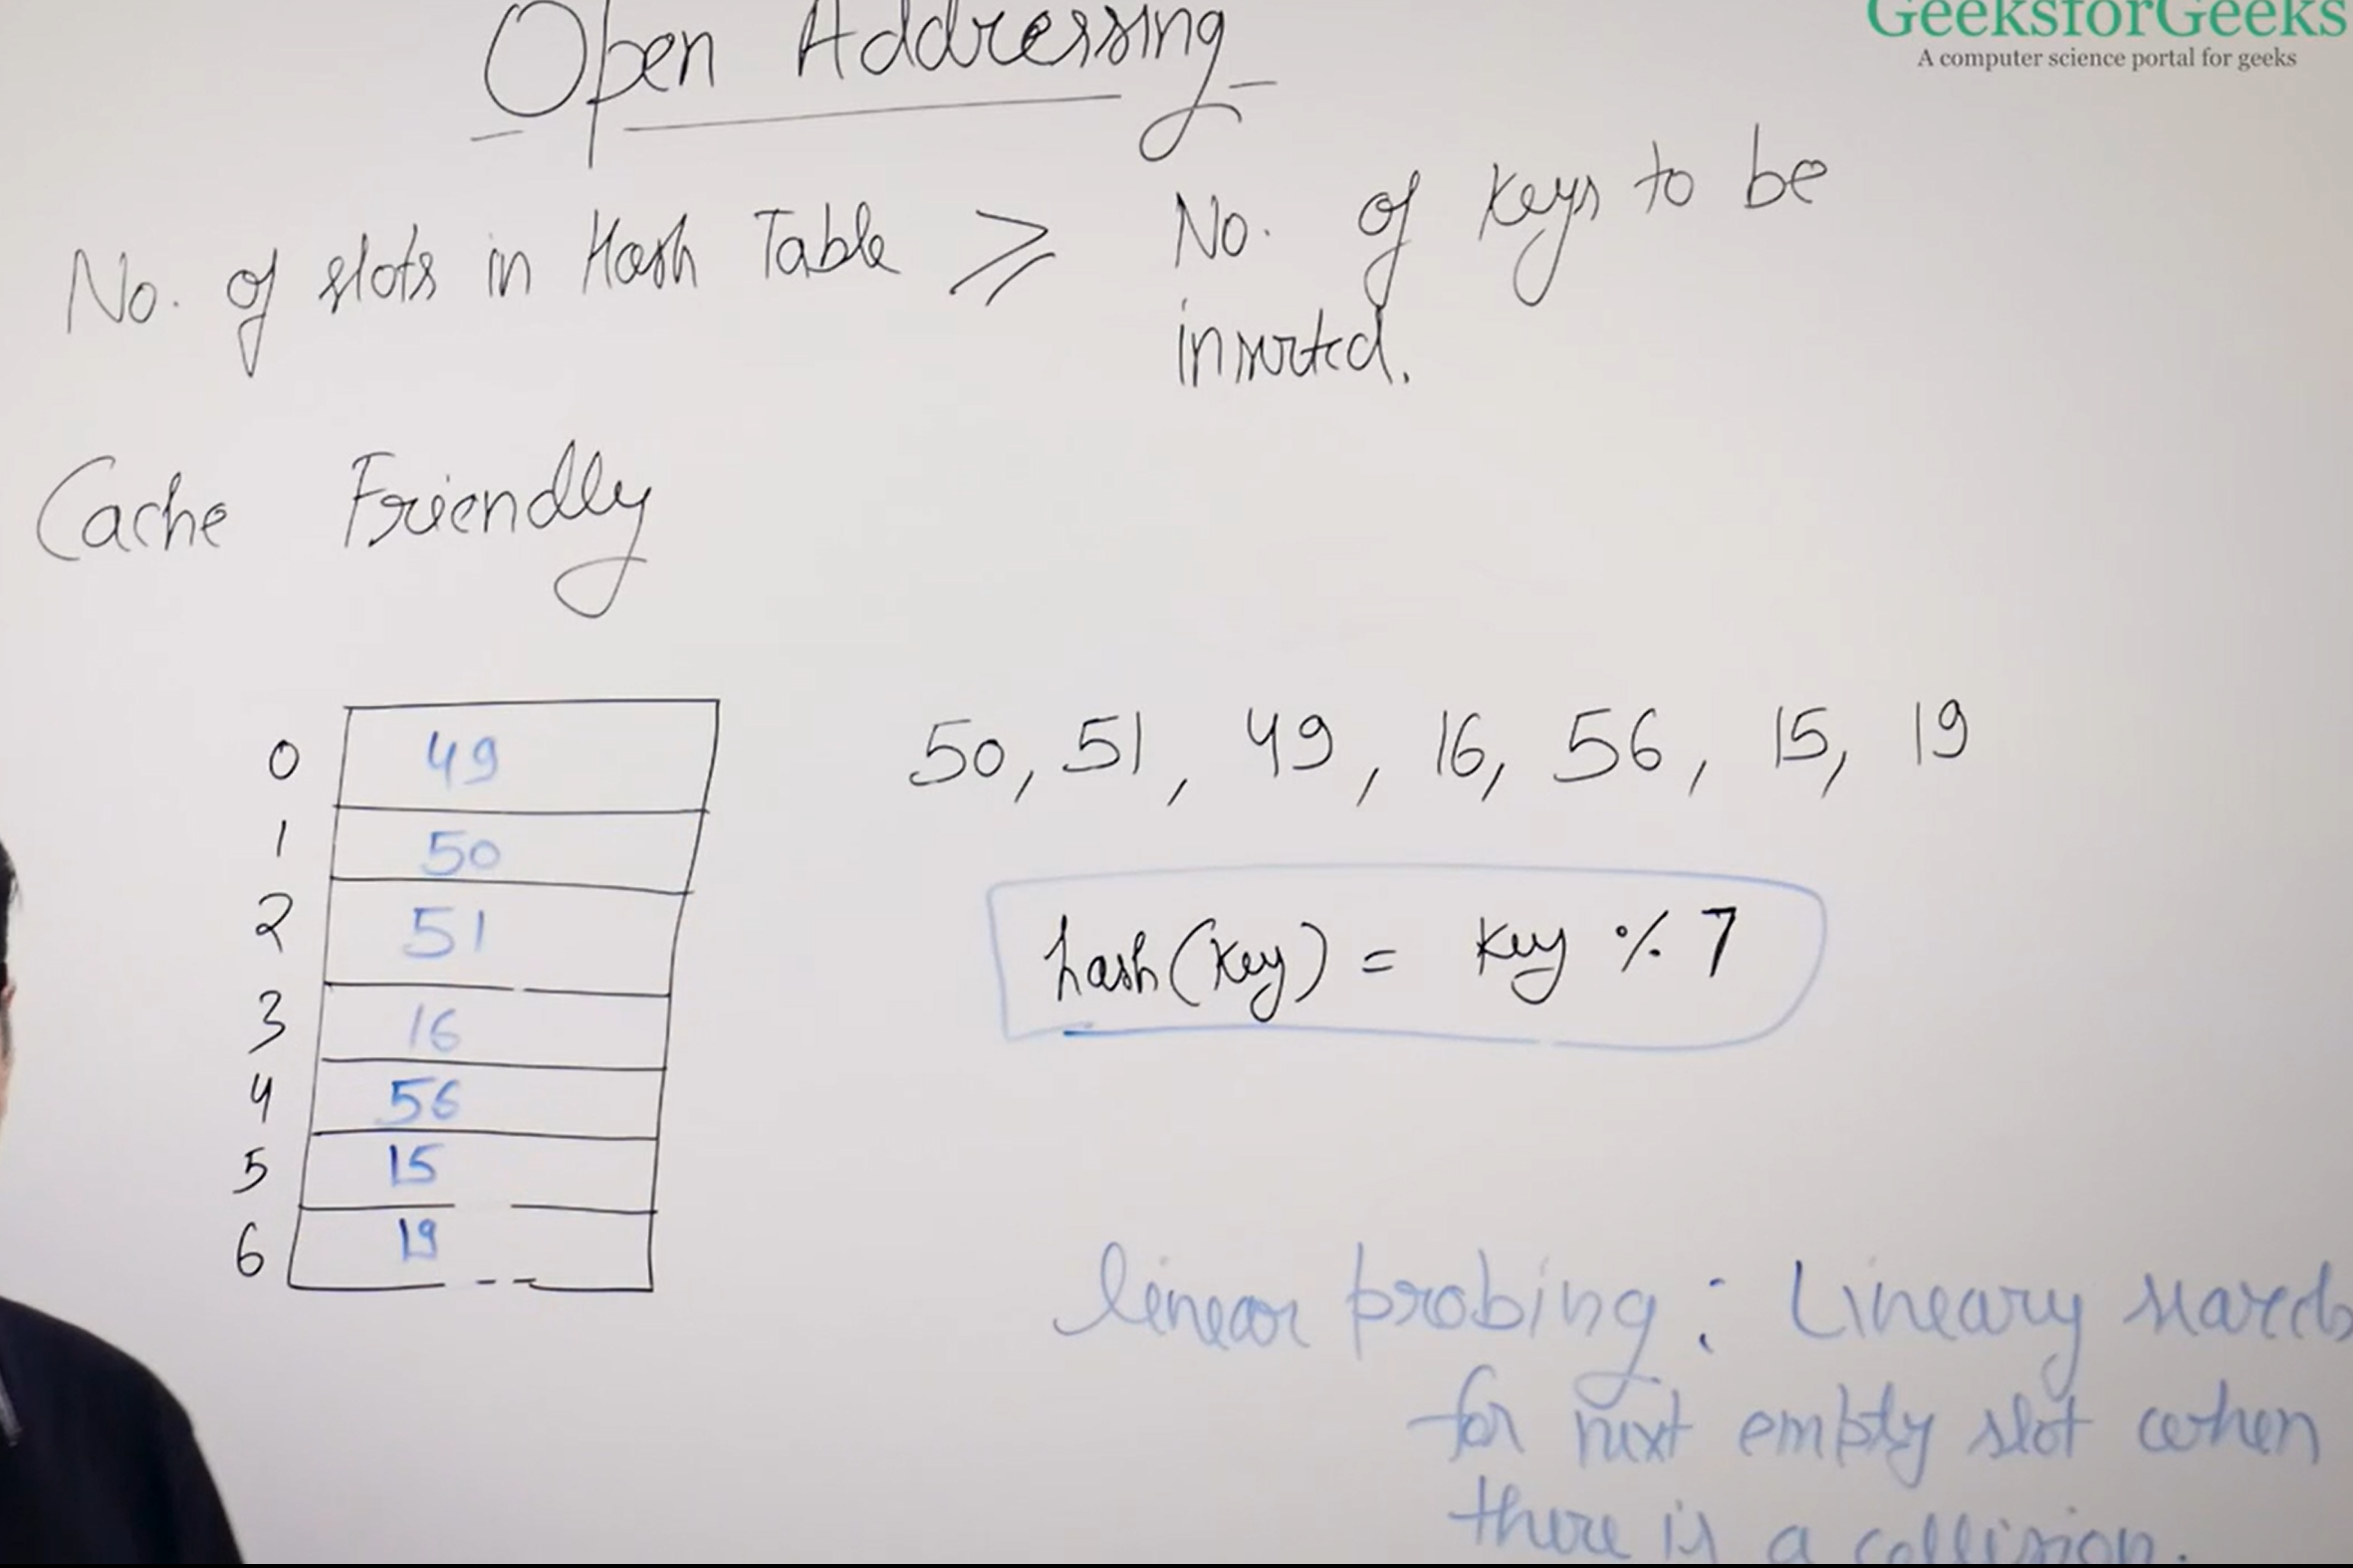 GeeksforGeeks
A computer science portal for geeks
Open Addressing
No. of slots in Hash Table ⩾ No. of keys to be
inserted.
Cache Friendly
0 49
1 50
2 51
3 16
4 56
5 15
6 19
50, 51, 49, 16, 56, 15, 19
hash(key) = key % 7
linear probing : Lineary search
for next empty slot when
there is a collision.